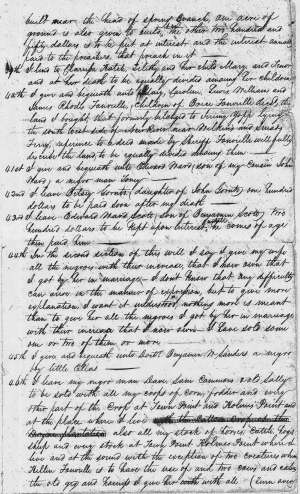 built near the head of spring Branch, an acre of
ground is also given to build, the other two hundred and
fifty dollars is to be put at interest and the interest annually
paid to the preacher, that preach in it
39th I lend to Clarify Hatch Tilda and her child Mary and Sena
and at her death to be equally divided among her children
40th I give and bequeath unto Mary, Caroline, Lewis Williams and
James Rhodk Fonville, children of Brice Fonville decd, the
land I bought, that formerly belonged to lying
the south west side of New River near Wilkins and
Ferry, reference to deeds made by Sheriff Fonville will fully
describe the land, to be equally divided among them
41st I give and bequeath unto Edward Ward, son of my Cousin John
Ward, a negro man Toney
42nd I leave Betsey Scott, daughter of John Scott, one hundred
dollars to be paid soon after my death
43rd I leave Edward Ward Scott, son of Benjamin Scott, two
hundred dollars to be kept upon interest, he comes of age
then paid him
44th In the second section of this will I say I give my wife
all the negroes with their increase, that I now own that
I got by her in marriage. I dont know that any difficulty
can arise in the manner of expression, but to give more
explanation I want it understood nothing more is meant
than to give her all the negroes I got by her in marriage
with their increase that I now own. I have sold some
one or two of them or more
45th I give and bequeath unto Doctr Benjamin W. Sanders a negro
boy little Elias
46th I leave my negro man Dave, Sam Cummons and Sally
to be sold with all my crops of corn, fodder and every
other part of the Crop at Town Point and Holmes Point and
at the place where I live
plantation also all my stock of horses, Cattle, hogs,
sheep and every stock at Town Point Holmes Point where I
live and at the sound with the exception of two creatures when
Killer Fonville is to have the use of and two cows and calves
the old gig and I give her with all (turn over